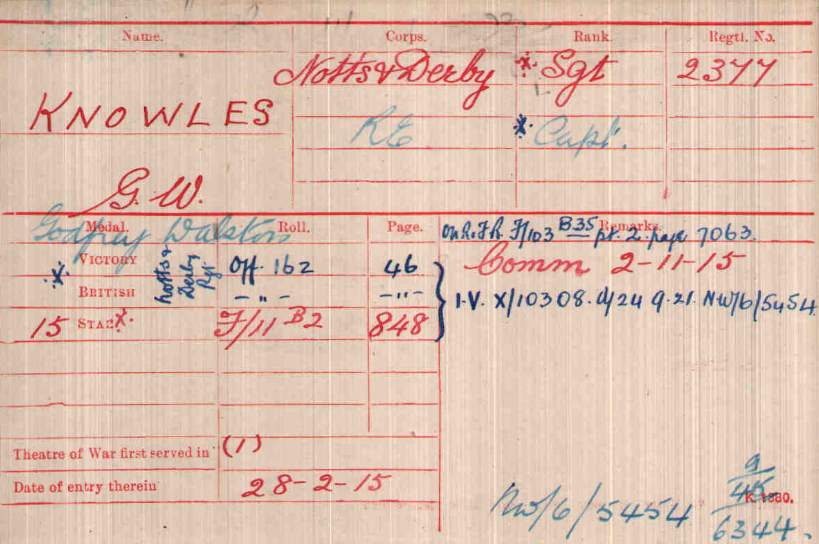 Name. Corps. Rank. Regtl. No.
KNOWLES Notts & Derby * Sgt 2377
RE * Capt.
G.W.
Godfrey Walston
Medal. Roll. Page. Remarks.
On R. F/103 B35 pt. 2. page 7063.
* VICTORY Notts & Derby Rgt Off. 162 46 Comm 2-11-15
BRITISH - " - - " - I.V. X/10308. d/24 9.21. NW/6/5454
15 STAR * F/11 B2 848
Theatre of War first served in (1)
Date of entry therein 28-2-15
NW/6/5454
9
K 1380.
6344.